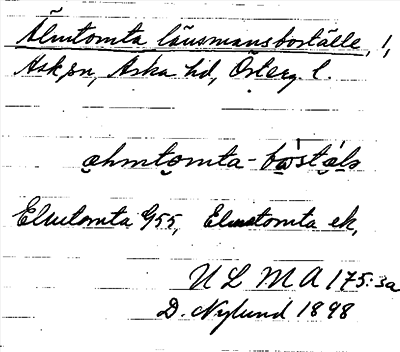 Älmtomta länsmansboställe, 1,
Ask sn, Aska hd, Österg. l.
ęhmtomta-bωstäls
Elmtomta 955, Elmtomta ek,
U L M A 175:3a
D. Nylund 1898